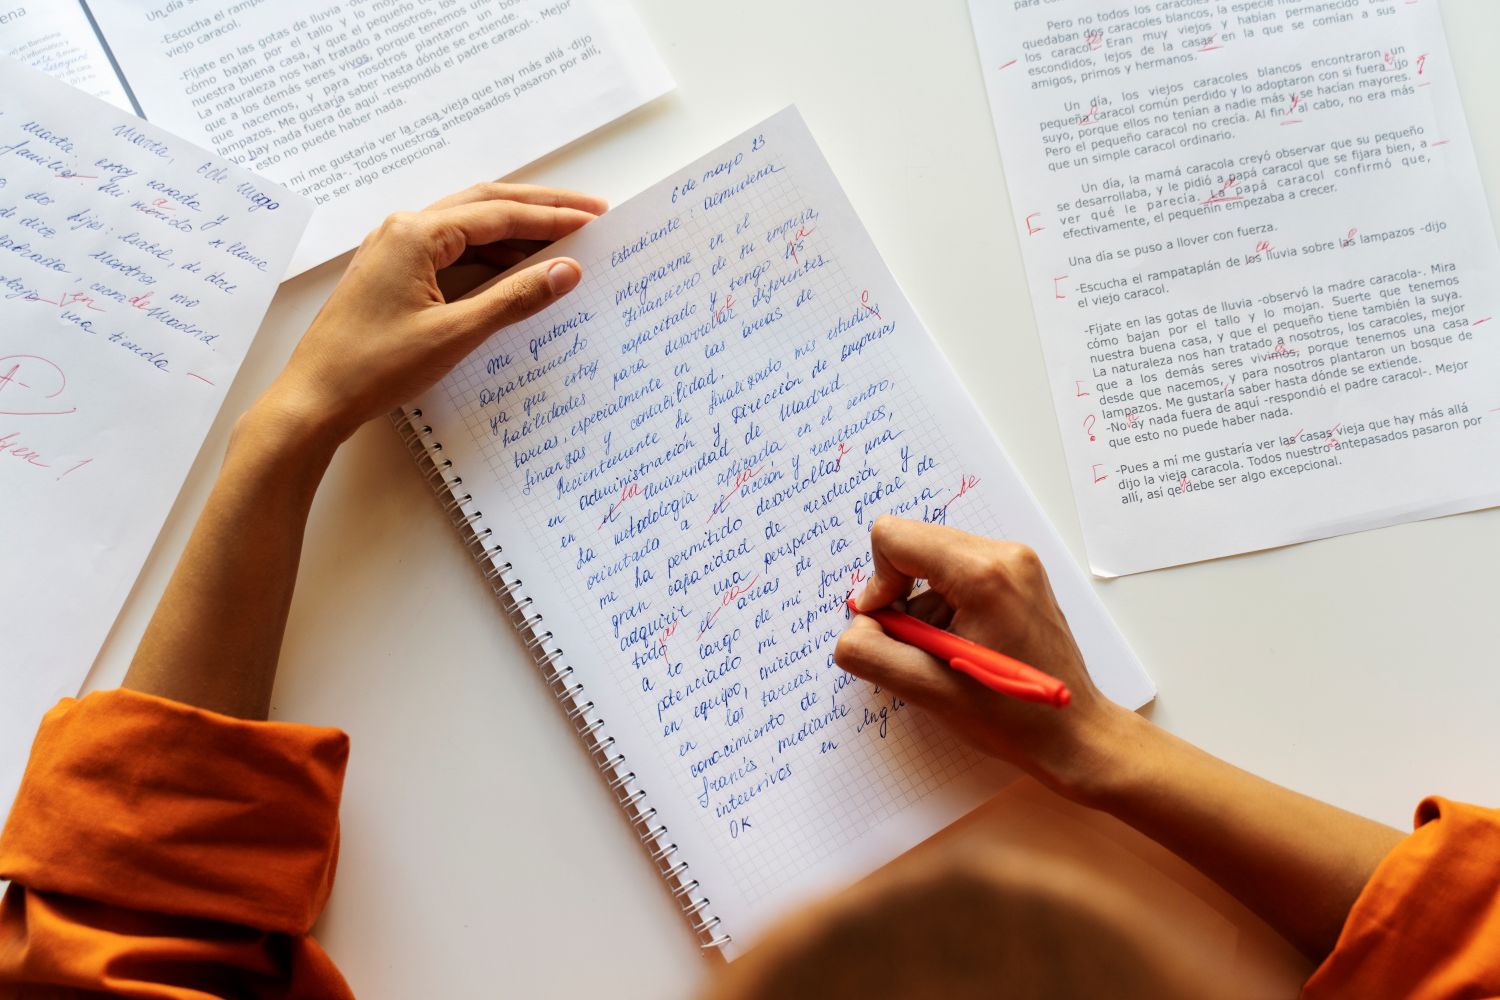 Marta, 6 de mayo
Marta, estoy casada y
familia. Mi marido se llama
dos hijos: Isabel, de doce
de diez
Nosotros
cerca de Madrid.
en
una tienda
A-
Bien!
Un día se
-Escucha el rampa
viejo caracol.
-Fíjate en las gotas de lluvia
cómo bajan por el tallo y lo mojan.
nuestra buena casa, y que el pequeño tiene
La naturaleza nos han tratado a nosotros, los
que a los demás seres vivos, porque tenemos una
que nacemos, y para nosotros plantaron un bos
lampazos. Me gustaría saber hasta dónde se extiende.
-No hay nada fuera de aquí -respondió el padre caracol-. Mejor
esto no puede haber nada.
a mí me gustaría ver la casa vieja que hay más allá -dijo
caracola-. Todos nuestros antepasados pasaron por allí,
be ser algo excepcional.
6 de mayo 23
Estudiante: Almudena
Me gustaría integrarme en el
Departamento Financiero de su empresa,
ya que estoy capacitado y tengo las
habilidades para desarrollar diferentes
tareas, especialmente en las áreas de
finanzas y contabilidad.
Recientemente he finalizado mis estudios
en administración y Dirección de Empresas
en el la Universidad de Madrid.
La metodología aplicada en el centro,
orientada a el la acción y resultados,
me ha permitido desarrollar una
gran capacidad de resolución y
adquirir una perspectiva global de
todo el la áreas de la empresa.
a lo largo de mi formac he
potenciado mi espíritu
en equipo, iniciativa
en las tareas, a
conocimiento de
francés, mediante
intensivos en Ingl
OK
Pero no todos los caracoles
quedaban dos caracoles blancos, la especie más
los caracol. Eran muy viejos y habían permanecido
escondidos, lejos de la casas en la que se comían a sus
amigos, primos y hermanos.
Un día, los viejos caracoles blancos encontraron un
pequeña caracol común perdido y lo adoptaron con si fuera ijo
suyo, porque ellos no tenían a nadie más y se hacían mayores.
Pero el pequeño caracol no crecía. Al fin i al cabo, no era más
que un simple caracol ordinario.
Un día, la mamá caracola creyó observar que su pequeño
se desarrollaba, y le pidió a papá caracol que se fijara bien, a
ver qué le parecía. La papá caracol confirmó que,
efectivamente, el pequeñín empezaba a crecer.
Una día se puso a llover con fuerza.
-Escucha el rampataplán de los lluvia sobre las lampazos -dijo
el viejo caracol.
-Fíjate en las gotas de lluvia -observó la madre caracola-. Mira
cómo bajan por el tallo y lo mojan. Suerte que tenemos
nuestra buena casa, y que el pequeño tiene también la suya.
La naturaleza nos han tratado a nosotros, los caracoles, mejor
que a los demás seres vivimos, porque tenemos una casa
desde que nacemos, y para nosotros plantaron un bosque de
lampazos. Me gustaría saber hasta dónde se extiende.
-No ay nada fuera de aquí -respondió el padre caracol-. Mejor
que esto no puede haber nada.
-Pues a mí me gustaría ver las casas vieja que hay más allá
dijo la vieja caracola. Todos nuestro antepasados pasaron por
allí, así qe debe ser algo excepcional.